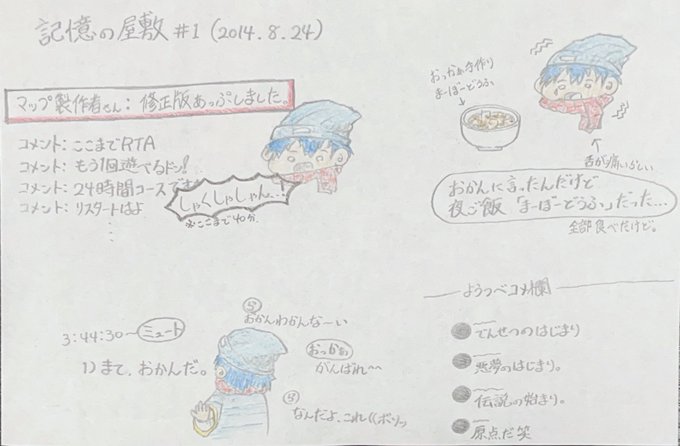 記憶の屋敷 #1 (2014.8.24)
マップ製作者さん: 修正版あっぷしました。
コメント: ここまでRTA
コメント: もう1回遊べるドン!
コメント: 24時間コースです
コメント: リスタートはよ
しゃくしゃしゃん..!
※ここまで40分
おっかぁ手作り
まーぼーどうふ
舌が痛いらしい
おかんに言ったんだけど
夜ご飯「まーぼーどうふ」だった…
全部食べたけど。
3:44:30~ミュート
まて、おかんだ。
おかんわかんな~い
おっかぁ
がんばれ~~
なんだよ、これ((ボソッ
ようつべコメ欄
でんせつのはじまり
悪夢のはじまり。
伝説の始まり。
原点だ笑